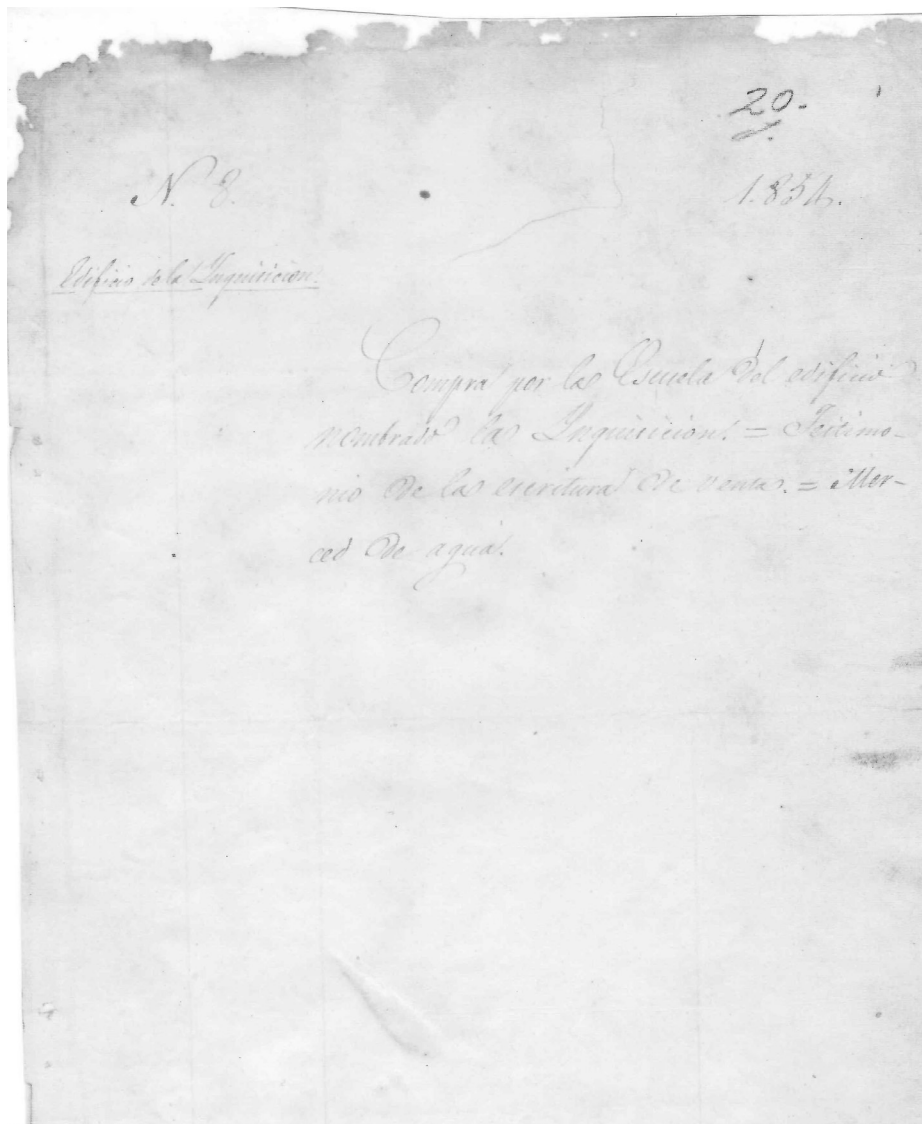 20.
N. 8.
1.854.
Edificio de la Inquisicion.
Compra por la Escuela del edificio
nombrado la Inquisicion. = Testimo-
nio de la escritura de venta. = Mer-
ced de agua.